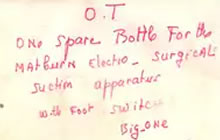 O.T
ONE Spare Bottle For the
MATBURN Electro - SURGICAL
Suction apparatus
with Foot Switch
Big one